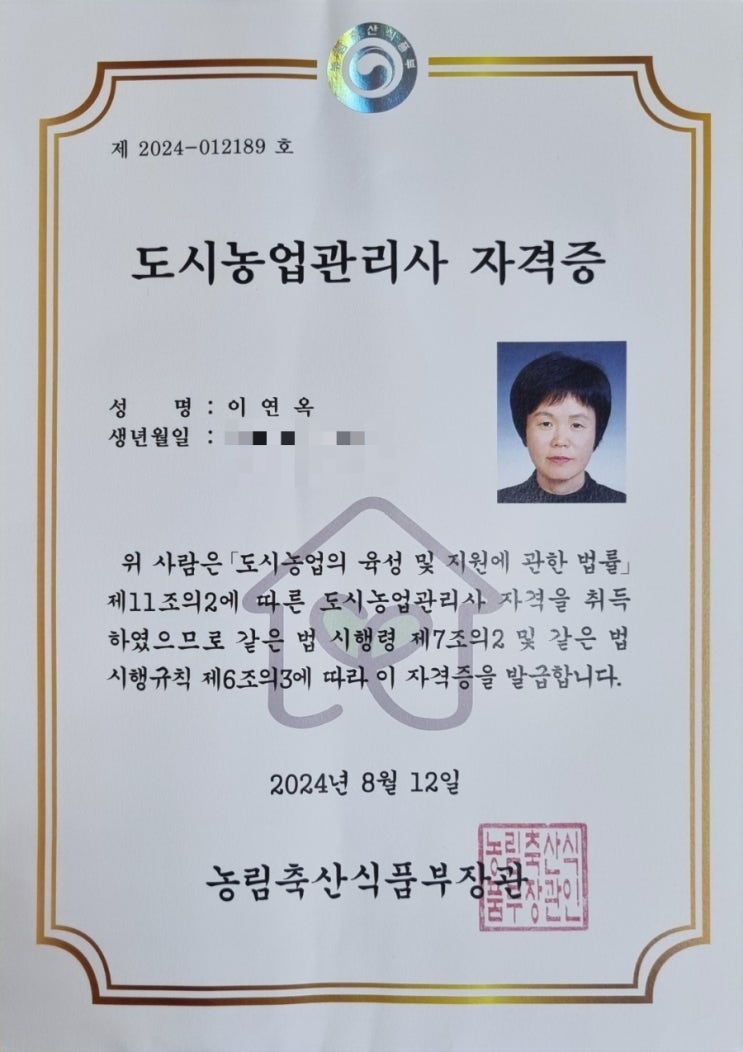 농림축산식품부
제 2024-012189 호
도시농업관리사 자격증
성 명 : 이 연 옥
생년월일 :
위 사람은 「도시농업의 육성 및 지원에 관한 법률」
제11조의2에 따른 도시농업관리사 자격을 취득
하였으므로 같은 법 시행령 제7조의2 및 같은 법
시행규칙 제6조의3에 따라 이 자격증을 발급합니다.
2024년 8월 12일
농림축산식품부장관
농림축산식
품부장관인